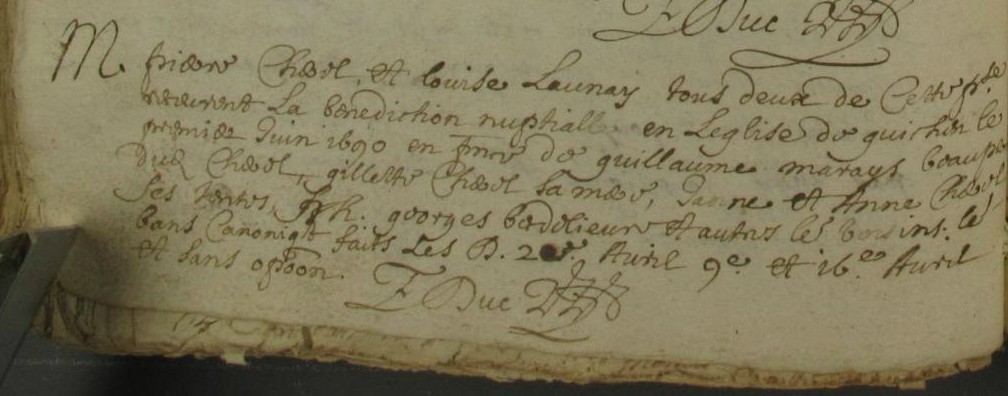 F Duc
M. pierre Chevel, et louise Launay tous deux de Cette p.sse
recevrent La benediction nuptiall en Leglise de guichen le
premier Juin 1690 en pnce de guillaume marays beaupere
dud Chevel, gillette Chevel sa mere, Janne et Anne Chevel
ses tentes, h. georges bedelieure et autres les voisins. le
bans Canoniqt faits Les D. 2e Avril 9e et 16.e Avril
et sans opoon.
F Duc